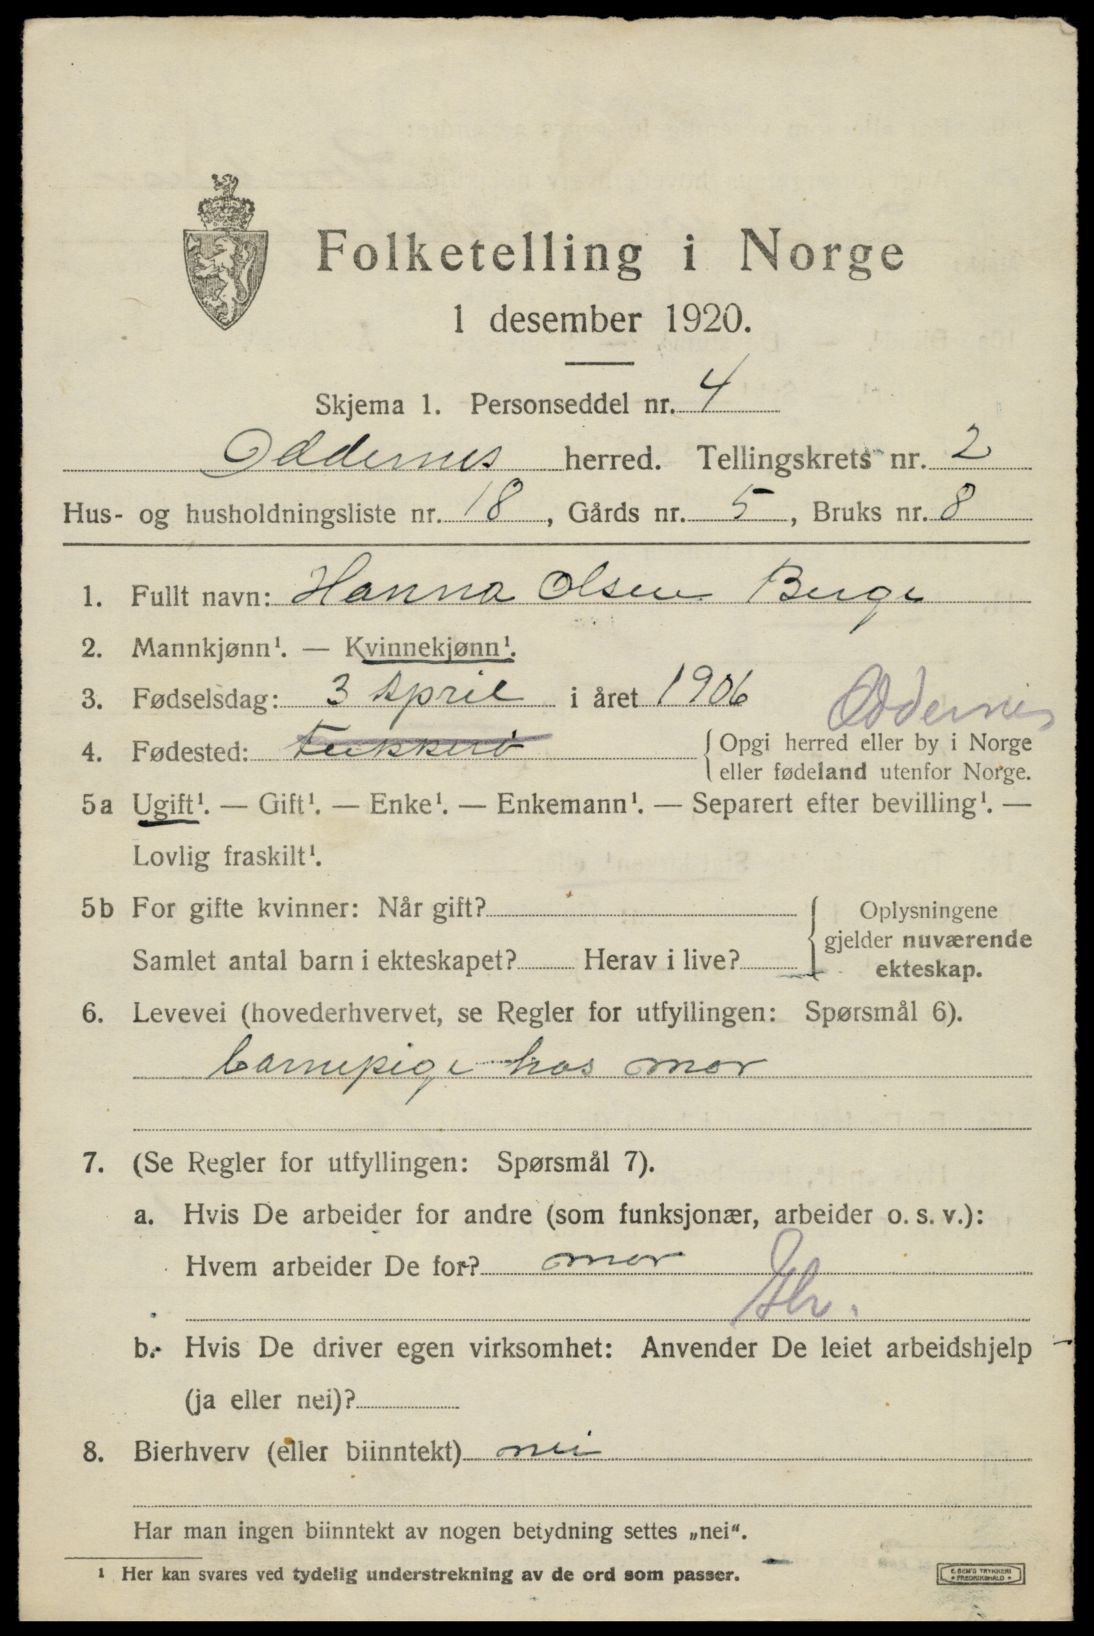 Folketelling i Norge
1 desember 1920.
Skjema 1. Personseddel nr. 4
Oddernes herred. Tellingskrets nr. 2
Hus- og husholdningsliste nr. 18, Gårds nr. 5, Bruks nr. 8
1. Fullt navn: Hanna Olsen Berge
2. Mannkjønn¹. — Kvinnekjønn¹.
3. Fødselsdag: 3 April i året 1906
Oddernes
4. Fødested: {Opgi herred eller by i Norge
eller fødeland utenfor Norge.
5a Ugift¹. — Gift¹. — Enke¹. — Enkemann¹. — Separert efter bevilling¹. —
Lovlig fraskilt¹.
5b For gifte kvinner: Når gift? { Oplysningene
gjelder nuværende
Samlet antal barn i ekteskapet? Herav i live?
ekteskap.
6. Levevei (hovederhvervet, se Regler for utfyllingen: Spørsmål 6).
barnepige hos mor
7. (Se Regler for utfyllingen: Spørsmål 7).
a. Hvis De arbeider for andre (som funksjonær, arbeider o. s. v.):
Hvem arbeider De for? mor
b. Hvis De driver egen virksomhet: Anvender De leiet arbeidshjelp
(ja eller nei)?
8. Bierhverv (eller biinntekt) nei
Har man ingen biinntekt av nogen betydning settes „nei“.
¹ Her kan svares ved tydelig understrekning av de ord som passer.
E. SEM'S TRYKKERI
FREDRIKSHALD